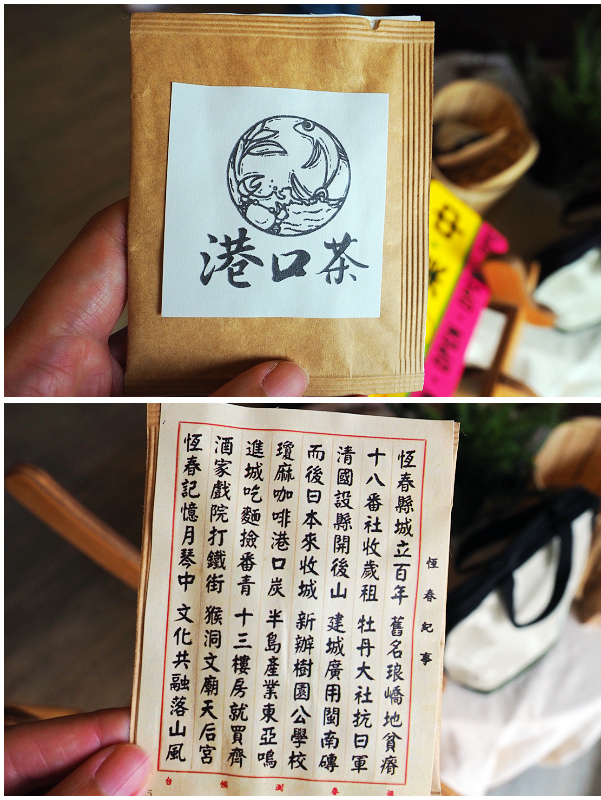 港口茶
恆春紀事
恆春縣城立百年 舊名琅嶠地貧瘠
十八番社收歲租 牡丹大社抗日軍
清國設縣開後山 建城廣用閩南磚
而後日本來收城 新辦樹園公學校
瓊麻咖啡港口炭 半島產業東亞嗚
進城吃麵撿番青 十三樓房就買齊
酒家戲院打鐵街 猴洞文廟天后宮
恆春記憶月琴中 文化共融落山風
春測候台